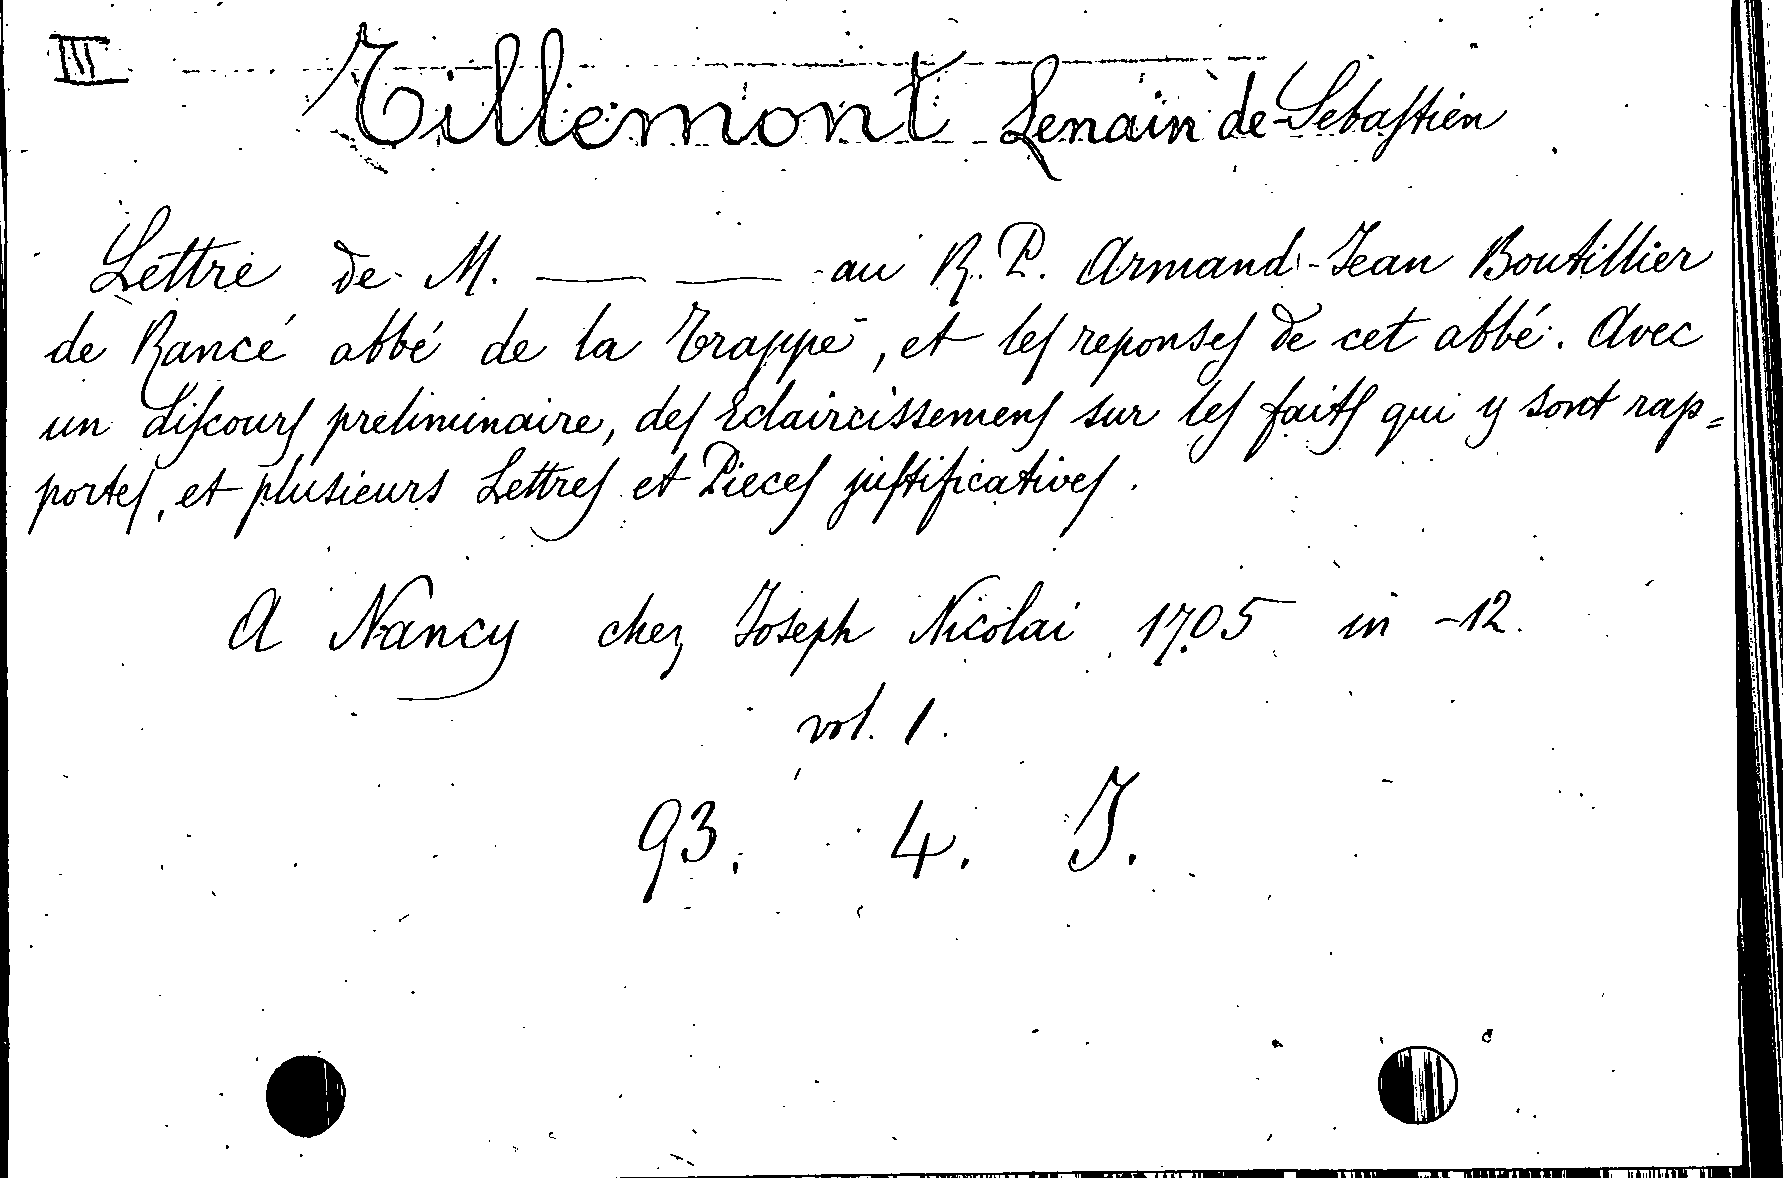 III
Tillemont Lenain de Sebastien
Lettre de M. ___ ___ au R. P. Armand-Jean Boutillier
de Rancé abbé de la Trappe, et les reponses de cet abbé. Avec
un discours preliminaire, des Eclaircissemens sur les faits qui y sont rap=
portes, et plusieurs Lettres et Pieces justificatives.
A Nancy chez Joseph Nicolai 1705 in-12.
vol. 1.
93. 4. J.